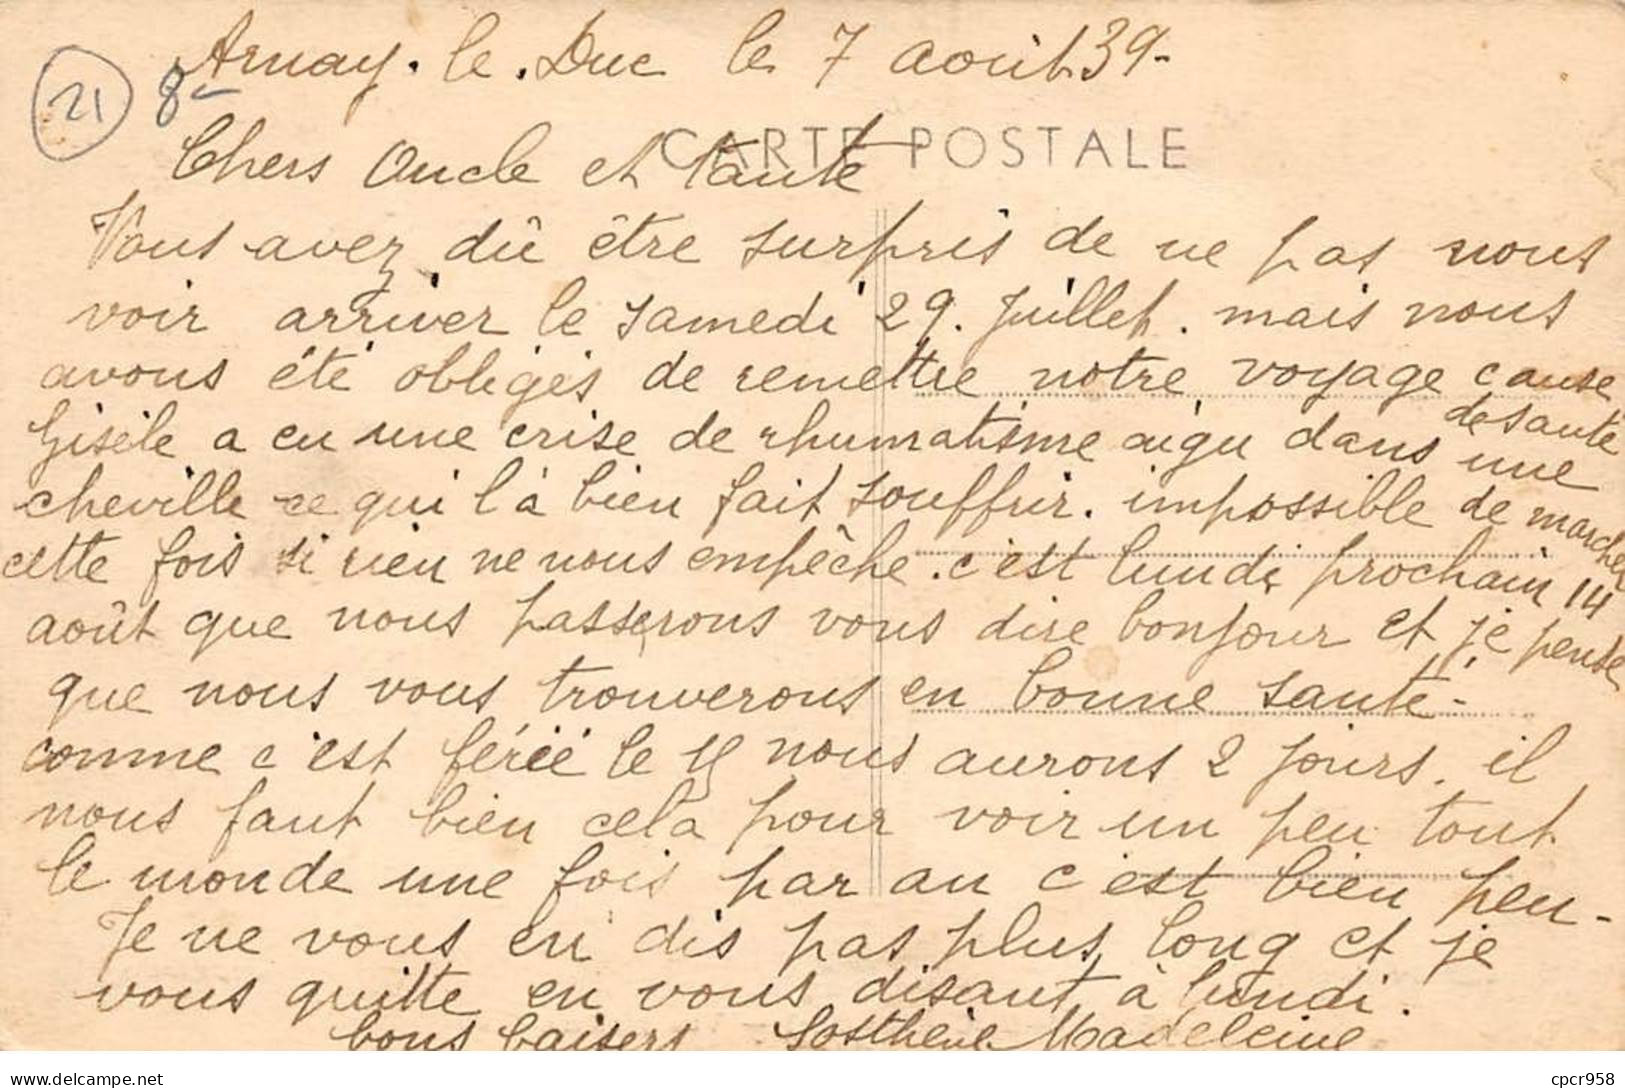 Arnay. le. Duc le 7 août 39-
21 8-
CARTE POSTALE
Chers Oncle et Tante
Vous avez dû être surpris de ne pas nous
voir arriver le samedi 29. Juillet. mais nous
avons été obligés de remettre notre voyage cause
de santé
Gisèle a eu une crise de rhumatisme aigu dans une
cheville ce qui l'à bien fait souffrir. impossible de marcher
cette fois si rien ne nous empêche. c'est lundi prochain 14
août que nous passerons vous dire bonjour et je pense
que nous vous trouverons en bonne santé-
comme c'est fériée le 15 nous aurons 2 jours. il
nous faut bien cela pour voir un peu tout
le monde une fois par an c'est bien peu-
Je ne vous en dis pas plus long et je
vous quitte en vous disant à lundi.
bons baisers Sosthène Madeleine
delcampe.net
cpcr958